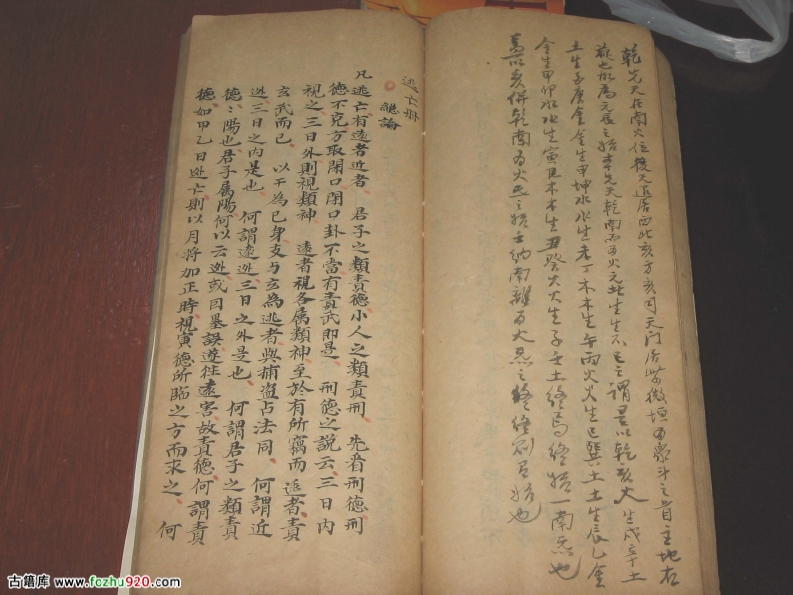 乾先天在南火位後天退居西北亥方亥司天門居紫微垣
為元辰之始本先天乾南為火元此生生不已之謂是以乾亥火生戌辛土
土生庚金金生申坤水水生未丁木木生午丙火火生巳巽土土生辰乙金
金生甲卯水水生寅艮木木生丑癸火火生子壬土終焉終始一南炁也
亥併乾南為火炁之始壬納南離為火炁之終終則有始也
逃亡冊
總論
凡逃亡有遠者近者 君子之類責德小人之類責刑 先看刑德刑
德不克方取閉口閉口卦不當有責武即是 刑德之說云三日內
視之三日外則視類神 遠者視各屬類神至於有所竊而追者責
玄武而已 以干為己身支與玄為逃者與捕盜占法同 何謂近
迯三日之內是也 何謂遠迯三日之外是也 何謂君子之類責
德德陽也君子屬陽何以云迯或因墨誤遊往遠害故責德何謂責
德如甲乙日迯亡則以月將加正時視寅德所臨之方而求之 何
古籍库 www.fozhu920.com